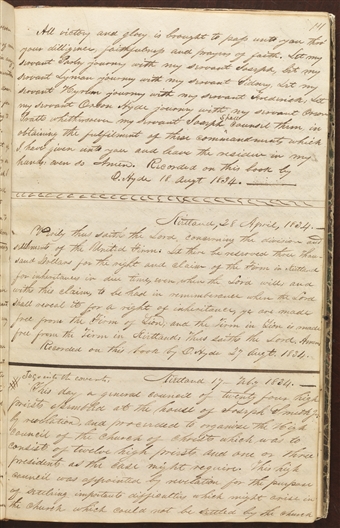 All victory and glory is brought to pass unto you thro
your diligence, faithfulness and prayers of faith. Let my
servant Parly journey with my servant Joseph, Let my
servant Lyman journey with my servant Sidney, Let my
servant Hyrum journey with my servant Frederick, Let
my servant Orson Hyde journey with my servant Orson
Pratt whithersoever my servant Joseph shall counsel them in
obtaining the fulfilment of these commandments, which
I have given unto you and leave the residue in my
hands even so Amen. Recorded on this book by
O. Hyde 18 Augt 1834.
Kirtland, 28 April, 1834
Verily thus saith the Lord, concerning the division and
settlement of the United Firm: Let there be reserved three thou-
sand Dollars for the right and claim of the Firm in Kirtland
for inheritances in due time, even when the Lord will; and
with this claim, to be had in remembrance when the Lord
shall reveal it, for a right of inheritance, ye are made
free from the Firm of Zion, and the Firm in Zion is made
free from the Firm in Kirtland: thus saith the Lord, Amen
Recorded on this book by O. Hyde 27 Augt. 1834.
Kirtland 17 Feby 1834.
This day a general council of twenty four high
priests assembled at the house of Joseph Smith jr
by revelation, and proceeded to organize the High
Council of the Church of Christ which was to
consist of twelve high priests and one or three
presidents as the case might require. This high
council was appointed by revelation for the purpose
of settling important difficulties which might arise in
the church which could not be settled by the church